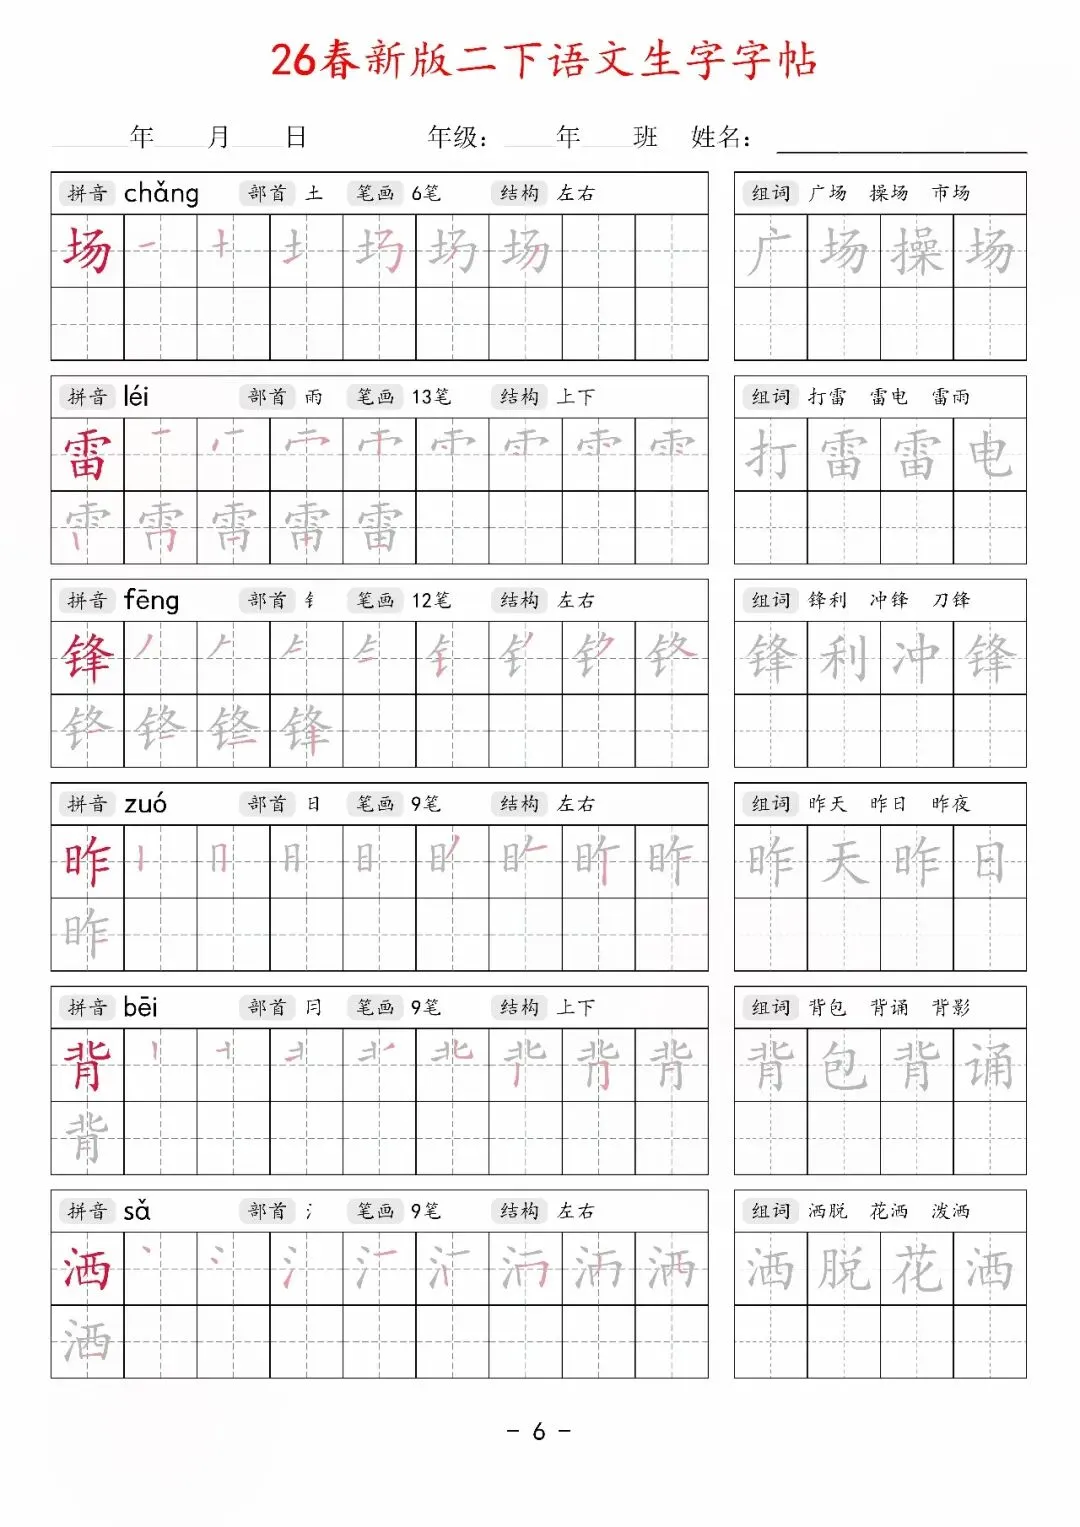 26春新版二下语文生字字帖
年 月 日 年级： 年 班 姓名：
拼音 chǎng 部首 土 笔画 6笔 结构 左右
组词 广场 操场 市场
场
广场操场
拼音 léi 部首 雨 笔画 13笔 结构 上下
组词 打雷 雷电 雷雨
雷
打雷雷电
雷
拼音 fēng 部首 钅 笔画 12笔 结构 左右
组词 锋利 冲锋 刀锋
锋
锋利冲锋
锋
拼音 zuó 部首 日 笔画 9笔 结构 左右
组词 昨天 昨日 昨夜
昨
昨天昨日
昨
拼音 bēi 部首 ⺝ 笔画 9笔 结构 上下
组词 背包 背诵 背影
背
背包背诵
背
拼音 sǎ 部首 氵 笔画 9笔 结构 左右
组词 洒脱 花洒 泼洒
洒
洒脱花洒
洒
- 6 -